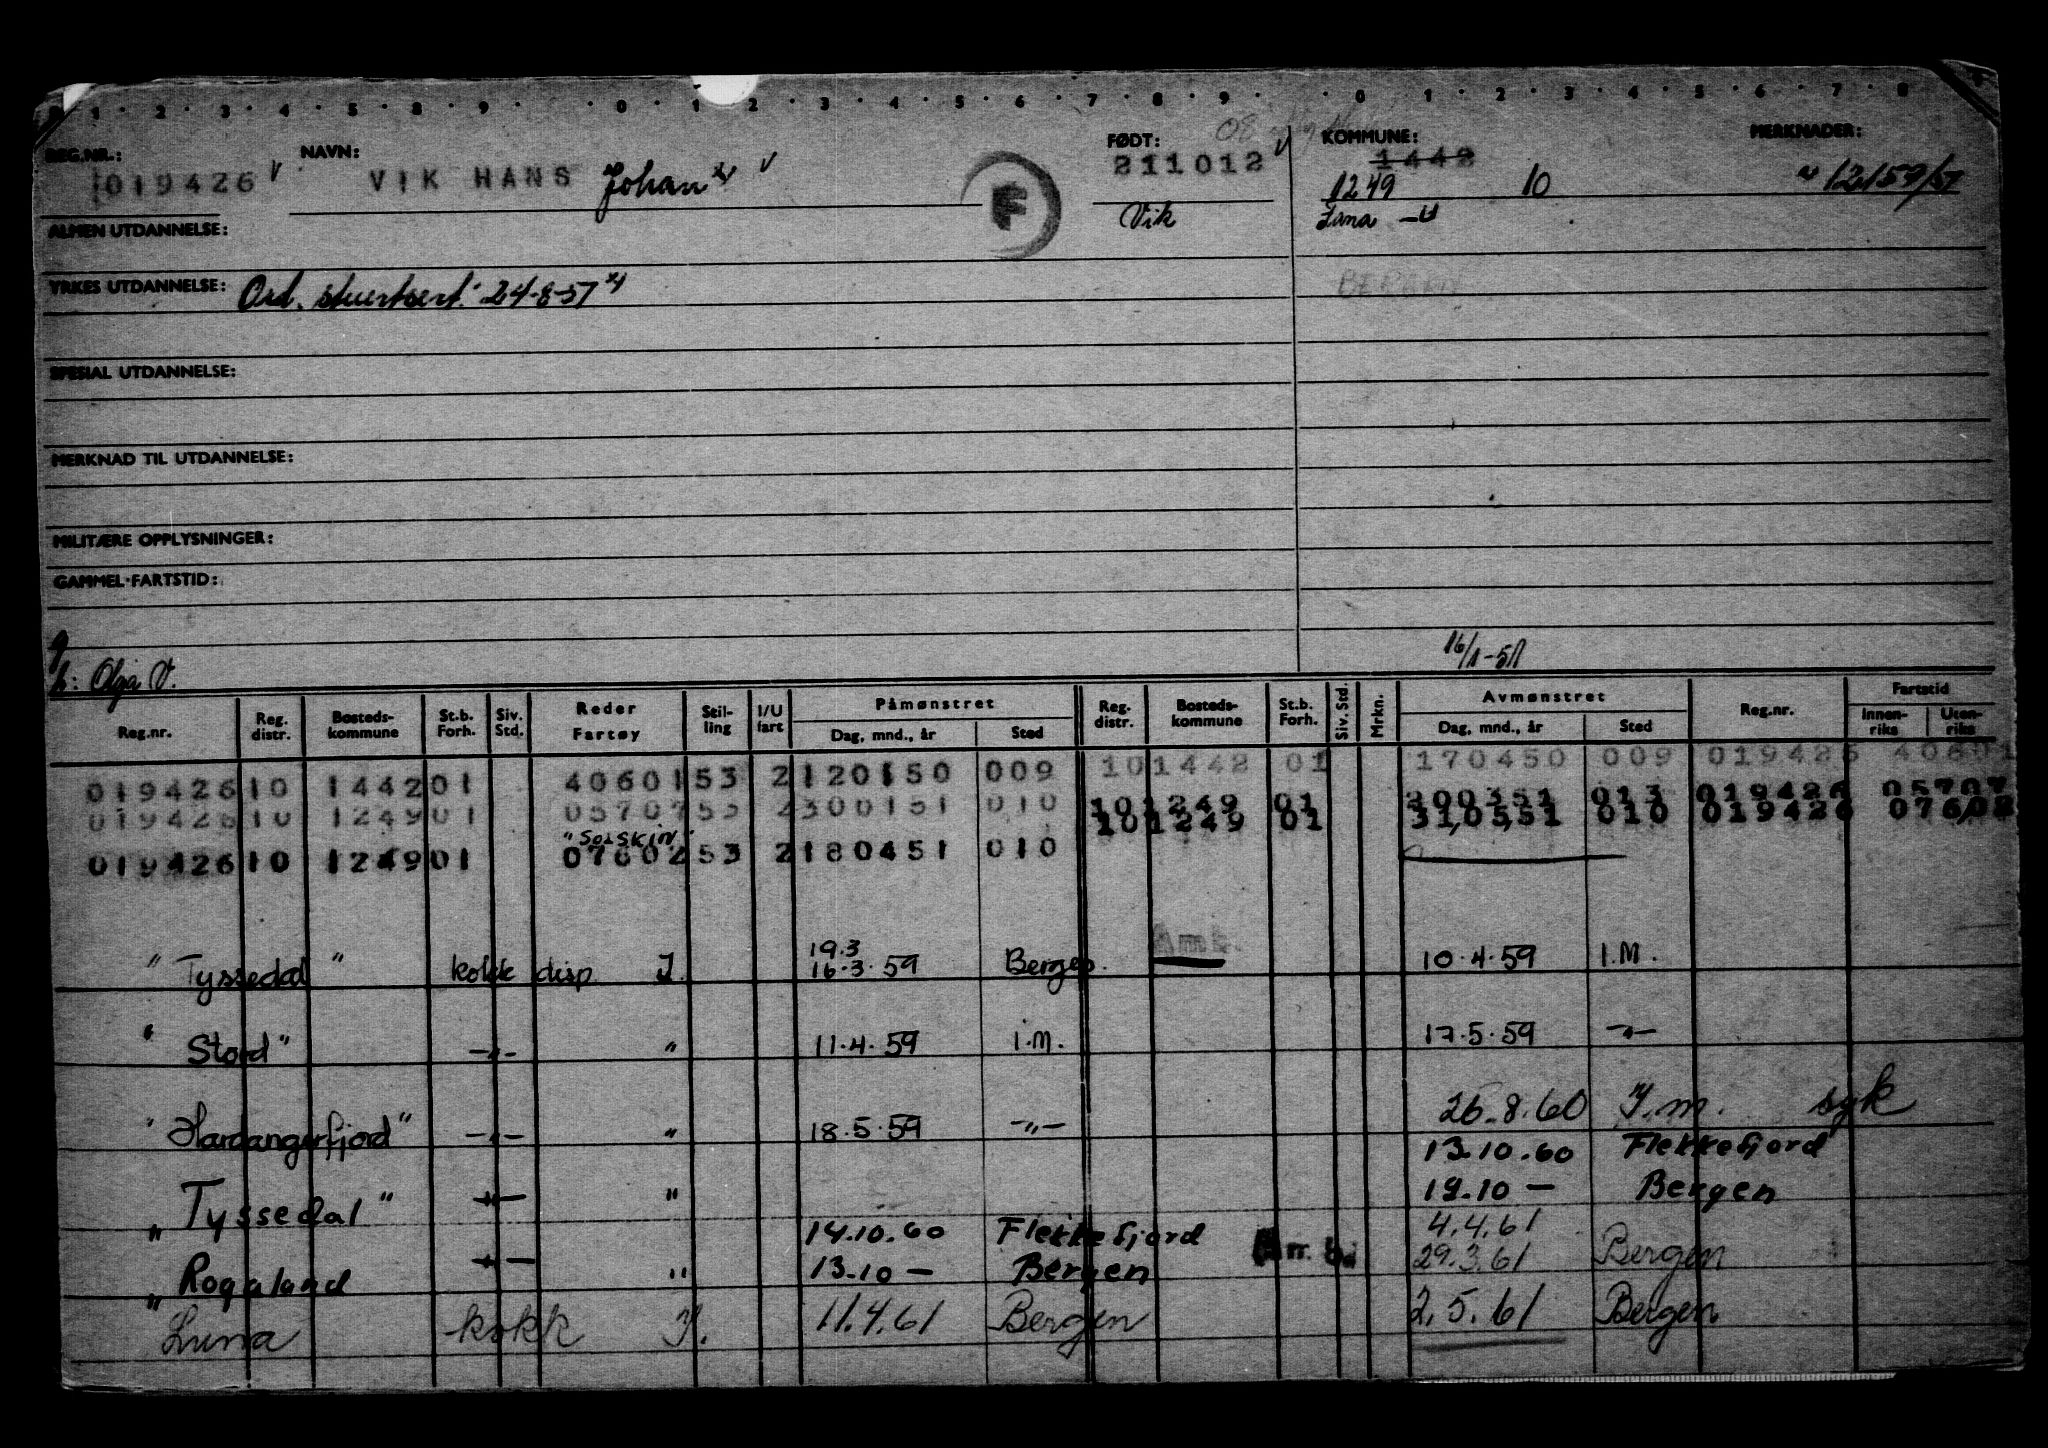 1 · 2 · 3 · 4 · 5 · 8 · 9 · · 0 · 1 2 · 3 · 4 · 5 · 6 · 7 · 8 · 9 · 0 · 1 · 2 · 3 · 4 · 5 · 6 · 7 · 8
REG.NR.: NAVN: FØDT: KOMMUNE: MERKNADER:
019426 VIK HANS Johan 211012 1442
F 1249 10 12159/57
ALMEN UTDANNELSE: Vik
YRKES UTDANNELSE: Ord. stuertsert. 24-8-57
SPESIAL UTDANNELSE:
MERKNAD TIL UTDANNELSE:
MILITÆRE OPPLYSNINGER:
GAMMEL-FARTSTID:
16/1-51
h: Olga V.
Reg.nr. Reg. distr. Bosteds-kommune St.b. Forh. Siv. Std. Reder Fartøy Stil-ling I/U fart Påmønstret Dag, mnd., år Sted Reg. distr. Bosteds-kommune St.b. Forh. Siv. Std. Mrkn. Avmønstret Dag, mnd., år Sted Reg.nr. Fartstid Innen-riks Uten-riks
019426 10 1442 01 40601 53 2 120150 009 10 1442 01 170450 009 019426 40601
019426 10 1249 01 05707 53 2 300151 010 10 1249 01 200351 013 019426 05707
10 1249 01 310551 010 019426 07602
"SOLSKIN"
019426 10 1249 01 07602 53 2 180451 010
19.3
"Tyssedal" kokk disp. I. 16.3.59 Bergen. Amb. 10.4.59 I.M.
"Stord" -"- " 11.4.59 I.M. 17.5.59 -"-
"Hardangerfjord" -"- " 18.5.59 -"- 26.8.60 I.m. syk
13.10.60 Flekkefjord
"Tyssedal" -"- " 14.10.60 Flekkefjord 19.10 - Bergen
4.4.61
"Rogaland -"- " 13.10 - Bergen 29.3.61 Bergen
"Luna kokk I. 11.4.61 Bergen 2.5.61 Bergen